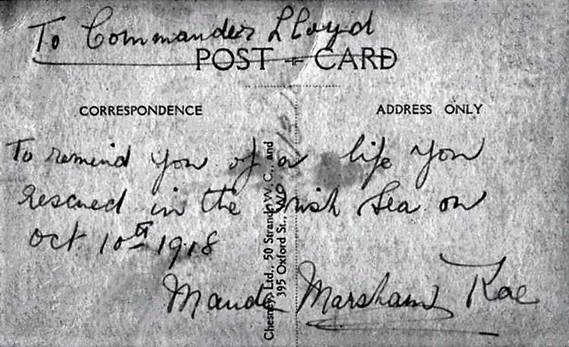 To Commander Lloyd
POST CARD
CORRESPONDENCE
ADDRESS ONLY
To remind you of a life you
rescued in the Irish Sea on
Oct 10th 1918
Maude Marsham Rae
Chesney, Ltd., 50 Strand W.C., and
395 Oxford St., W.